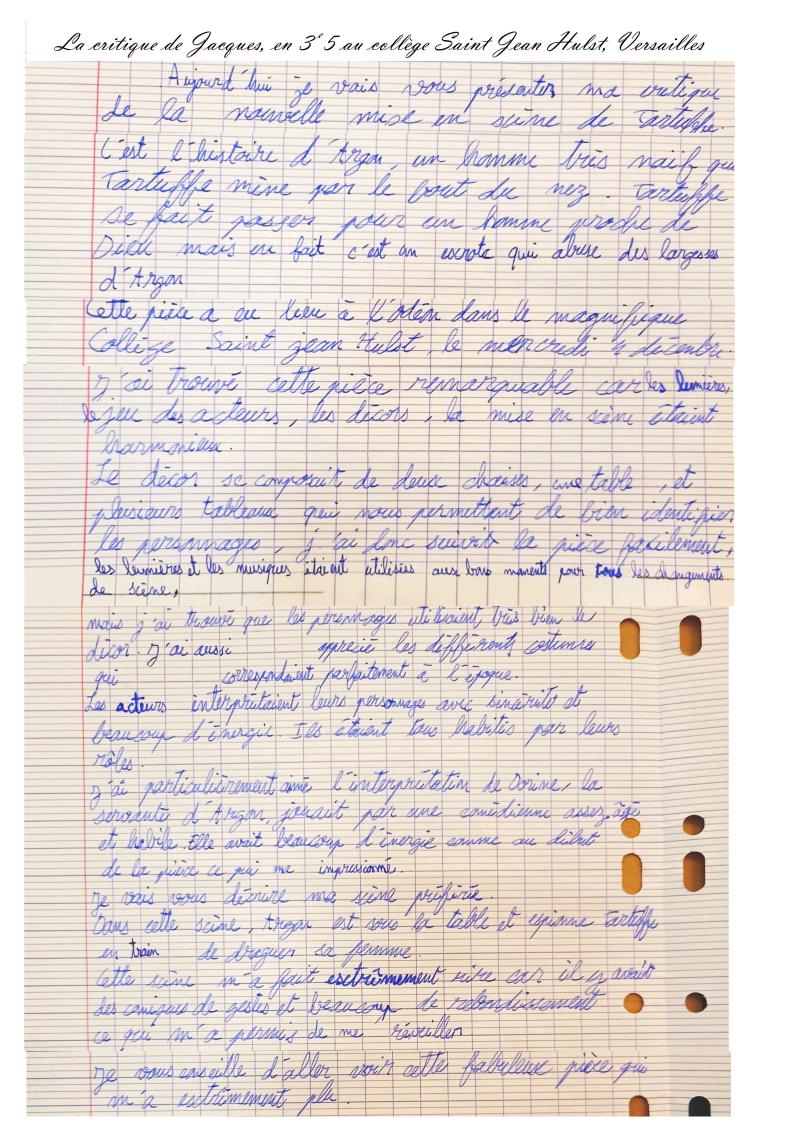 La critique de Jacques, en 3e 5 au collège Saint Jean Hulst, Versailles
Aujourd'hui je vais vous présenter ma critique
de la nouvelle mise en scène de Tartuffe.
C'est l'histoire d'Argon, un homme très naïf que
Tartuffe mène par le bout du nez. Tartuffe
se fait passer pour un homme proche de
Dieu mais en fait c'est un escrote qui abuse des largesses
d'Argon
Cette pièce a eu lieu à l'odéon dans le magnifique
Collège Saint jean Hulst, le mercredi 4 décembre.
J'ai trouvé cette pièce remarquable car les lumières,
le jeu des acteurs, les décors, la mise en scène étaient
harmonieux.
Le décor se composait de deux chaises, une table, et
plusieurs tableaux qui nous permettent de bien identifier
les personnages, j'ai donc suivit la pièce facilement,
les lumières et les musiques étaient utilisées aux bons moments pour tous les changements
de scène,
mais j'ai trouvé que les personnages utilisaient très bien le
décor. J'ai aussi apprécié les différents costumes
qui correspondaient parfaitement à l'époque.
Les acteurs interprétaient leurs personnages avec sincérité et
beaucoup d'énergie. Ils étaient tous habités par leurs
rôles.
J'ai particulièrement aimé l'interprétation de Dorine, la
servante d'Argon, jouait par une comédienne assez âgé
et habile. Elle avait beaucoup d'énergie comme au début
de la pièce ce qui ma impressionné.
Je vais vous décrire ma scène préférée.
Dans cette scène, Argon est sous la table et espionne Tartuffe
en train de droguer sa femme.
Cette scène m'a fait esctrêmement rire car il y avait
des comiques de gestes et beaucoup de rebondissement
ce qui m'a permis de me réveiller.
Je vous conseille d'aller voir cette fabuleuse pièce qui
m'a esctrêmement plu.